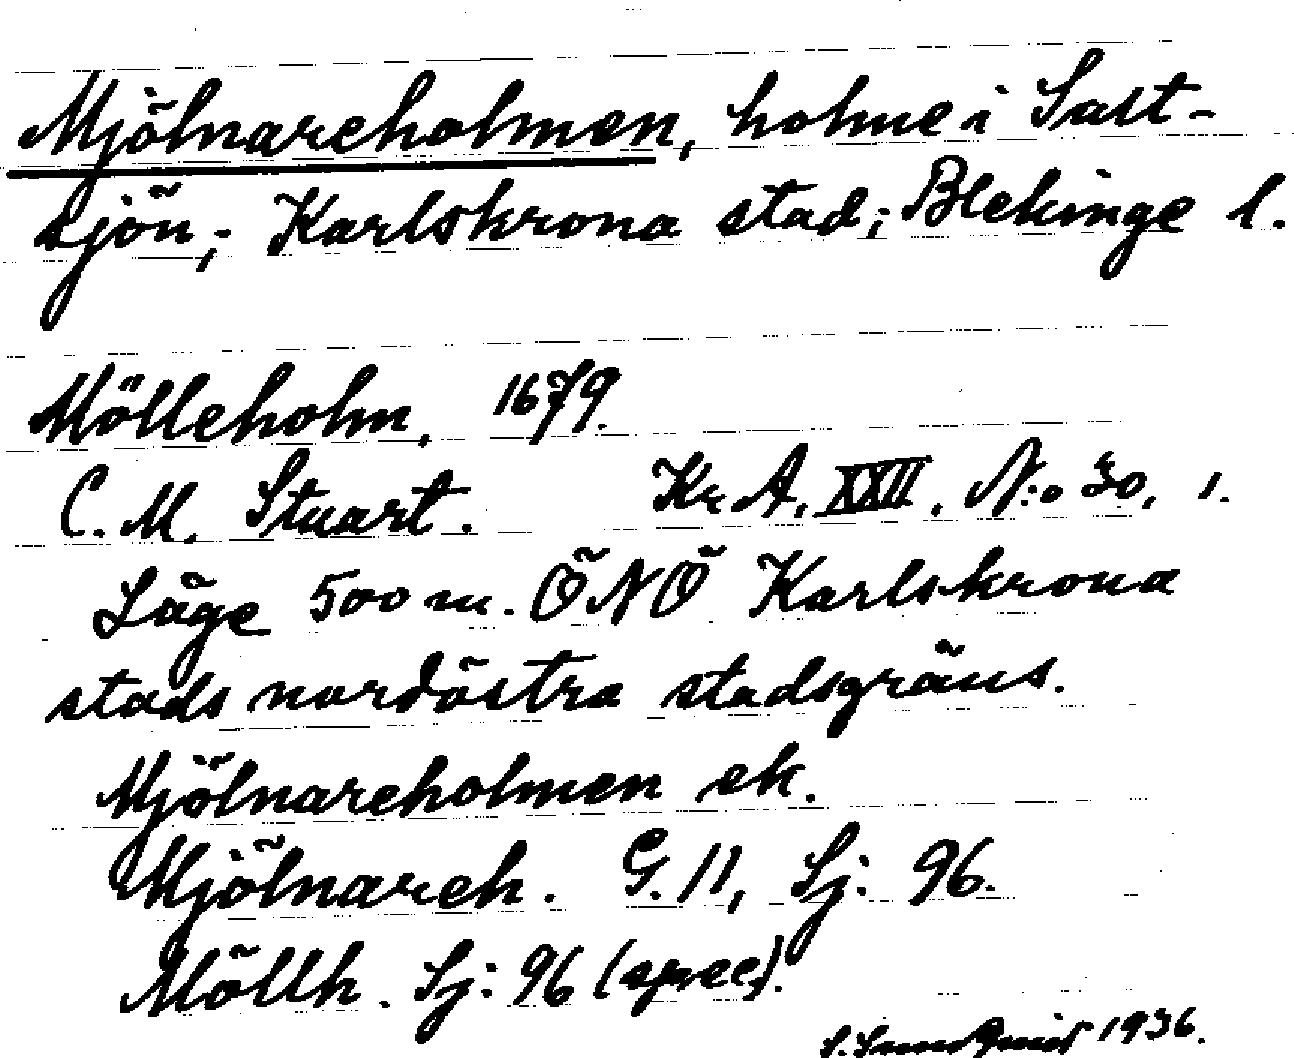 Mjölnareholmen, holme i Salt-
sjön; Karlskrona stad; Blekinge l.
Mölleholm, 1679.
C. M. Stuart. Kr A. XXII. N:o 30, 1.
Läge 500 m. ÖNÖ Karlskrona
stads nordöstra stadsgräns.
Mjölnareholmen ek.
Mjölnareh. G. 11, Sj: 96.
Möllh. Sj: 96 (spec).
1936.